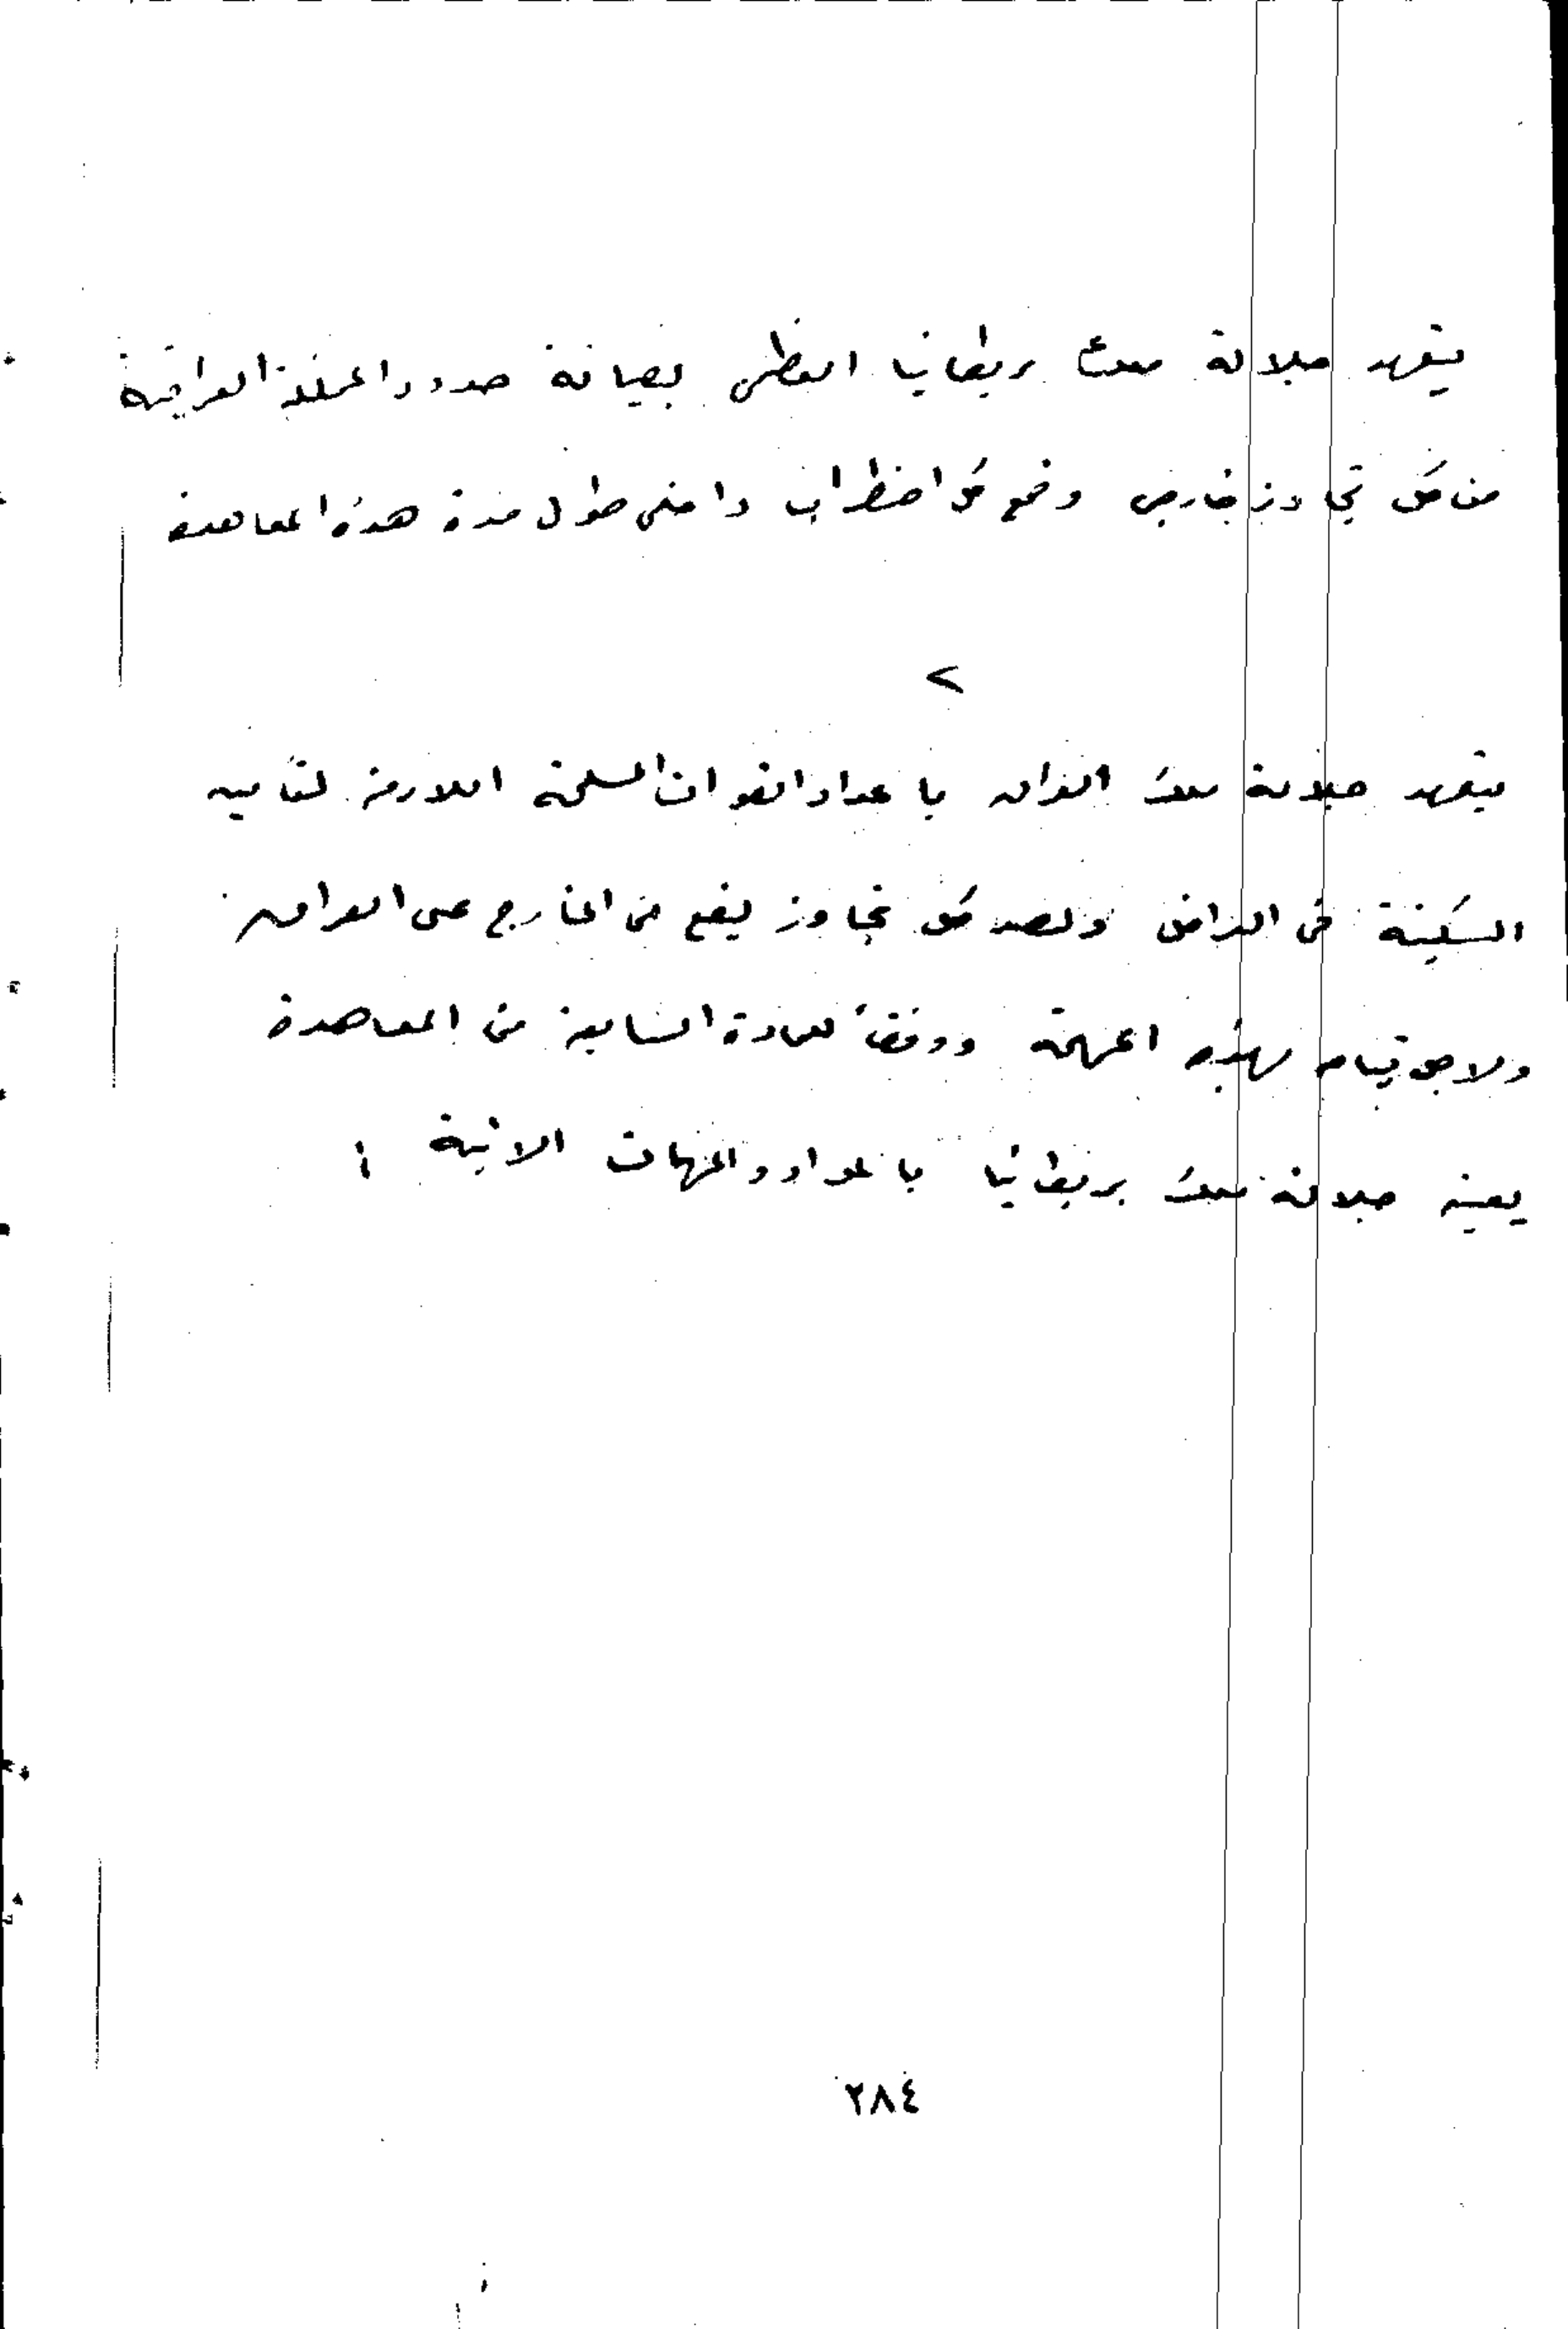 يتعهد جلالة ملك بريطانيا العظمى بصيانة حدود المملكة العراقية
من كل تجاوز خارجي وقمع كل اضطراب داخلي طول مدة هذه المعاهدة
٢
يتعهد جلالة ملك العراق باعداد القوات المسلحة اللازمة لتأمين
السكينة في الداخل ولصد كل تجاوز يقع من الخارج على العراق
ولاجل قيامه بهذه المهمة ووفقاً للمادة السابعة من المعاهدة
يعين جلالة ملك بريطانيا بالمواد والمهمات الاتية :
٢٨٤